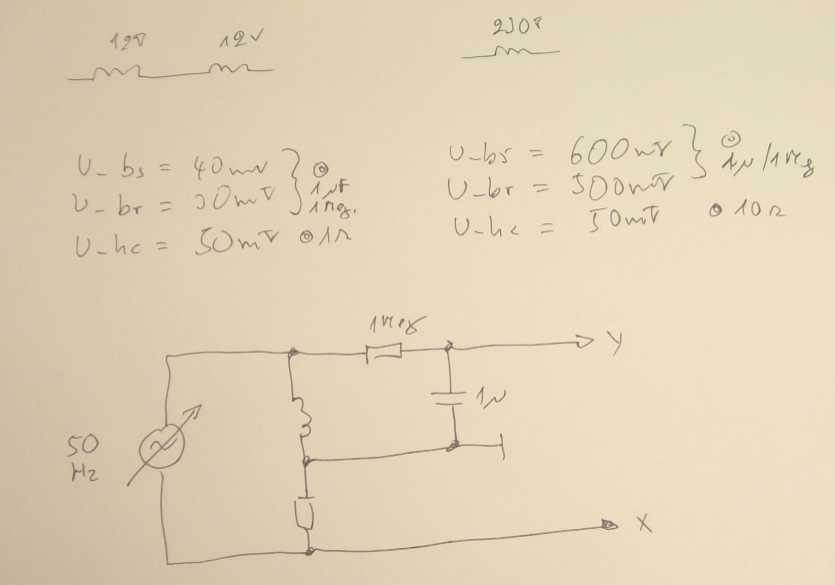 12V 12V
230V
U_bs = 40mV
U_br = 30mV
@ 1µF 1Meg.
U_hc = 50mV @1Ω
U_bs = 600mV
U_br = 500mV
@ 1µ/1Meg
U_hc = 50mV @ 10Ω
1Meg
Y
1µ
50
Hz
X